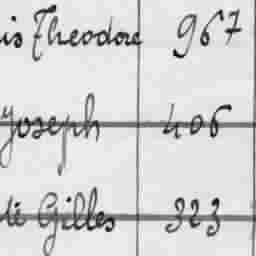 is Theodore 967
Joseph 406
té Gilles 323